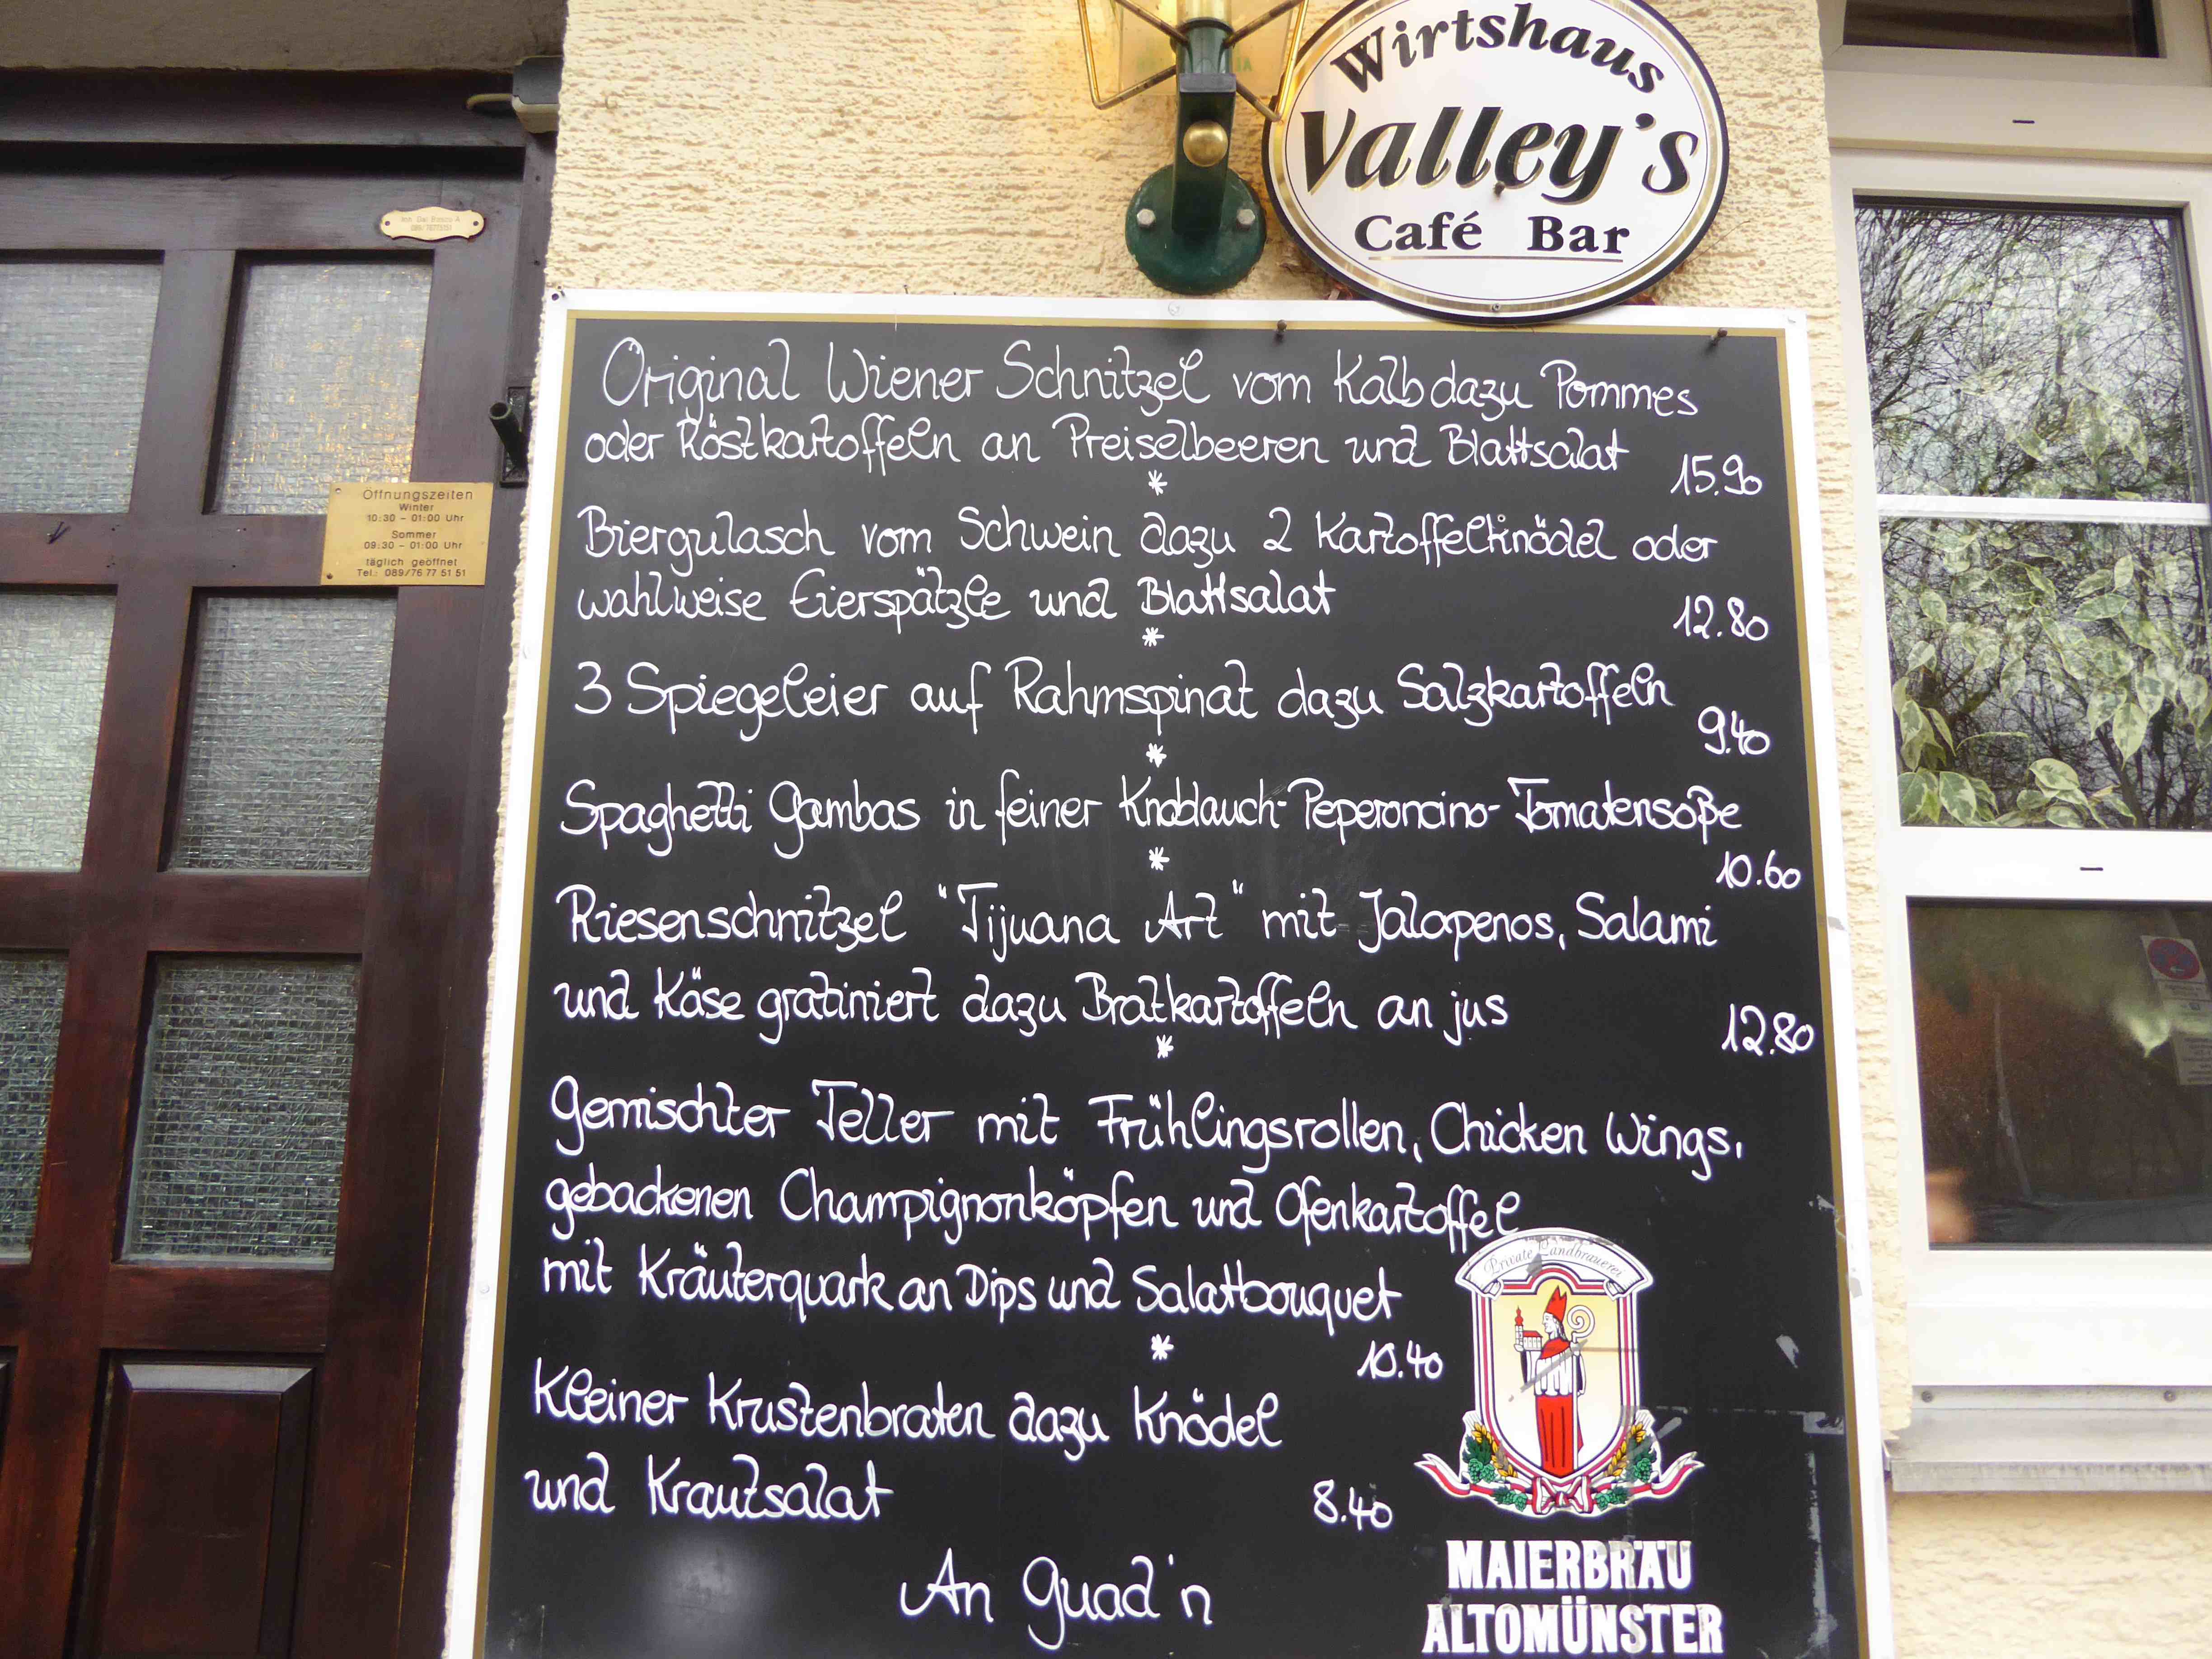 Wirtshaus
Valley's
Café Bar
Öffnungszeiten
Winter
10:30 - 01:00 Uhr
Sommer
09:30 - 01:00 Uhr
täglich geöffnet
Tel.: 089/76 77 51 51
Original Wiener Schnitzel vom Kalb dazu Pommes
oder Röstkartoffeln an Preiselbeeren und Blattsalat 15.90
*
Biergulasch vom Schwein dazu 2 Kartoffelknödel oder
wahlweise Eierspätzle und Blattsalat 12.80
*
3 Spiegeleier auf Rahmspinat dazu Salzkartoffeln
9.40
*
Spaghetti Gambas in feiner Knoblauch-Peperoncino-Tomatensoße
*
10.60
Riesenschnitzel "Tijuana Art" mit Jalapenos, Salami
und Käse gratiniert dazu Bratkartoffeln an jus 12.80
*
Gemischter Teller mit Frühlingsrollen, Chicken Wings,
gebackenen Champignonköpfen und Ofenkartoffel
mit Kräuterquark an Dips und Salatbouquet
*
10.40
Kleiner Krustenbraten dazu Knödel
und Krautsalat 8.40
An Guad'n
Private Landbrauerei
MAIERBRÄU
ALTOMÜNSTER